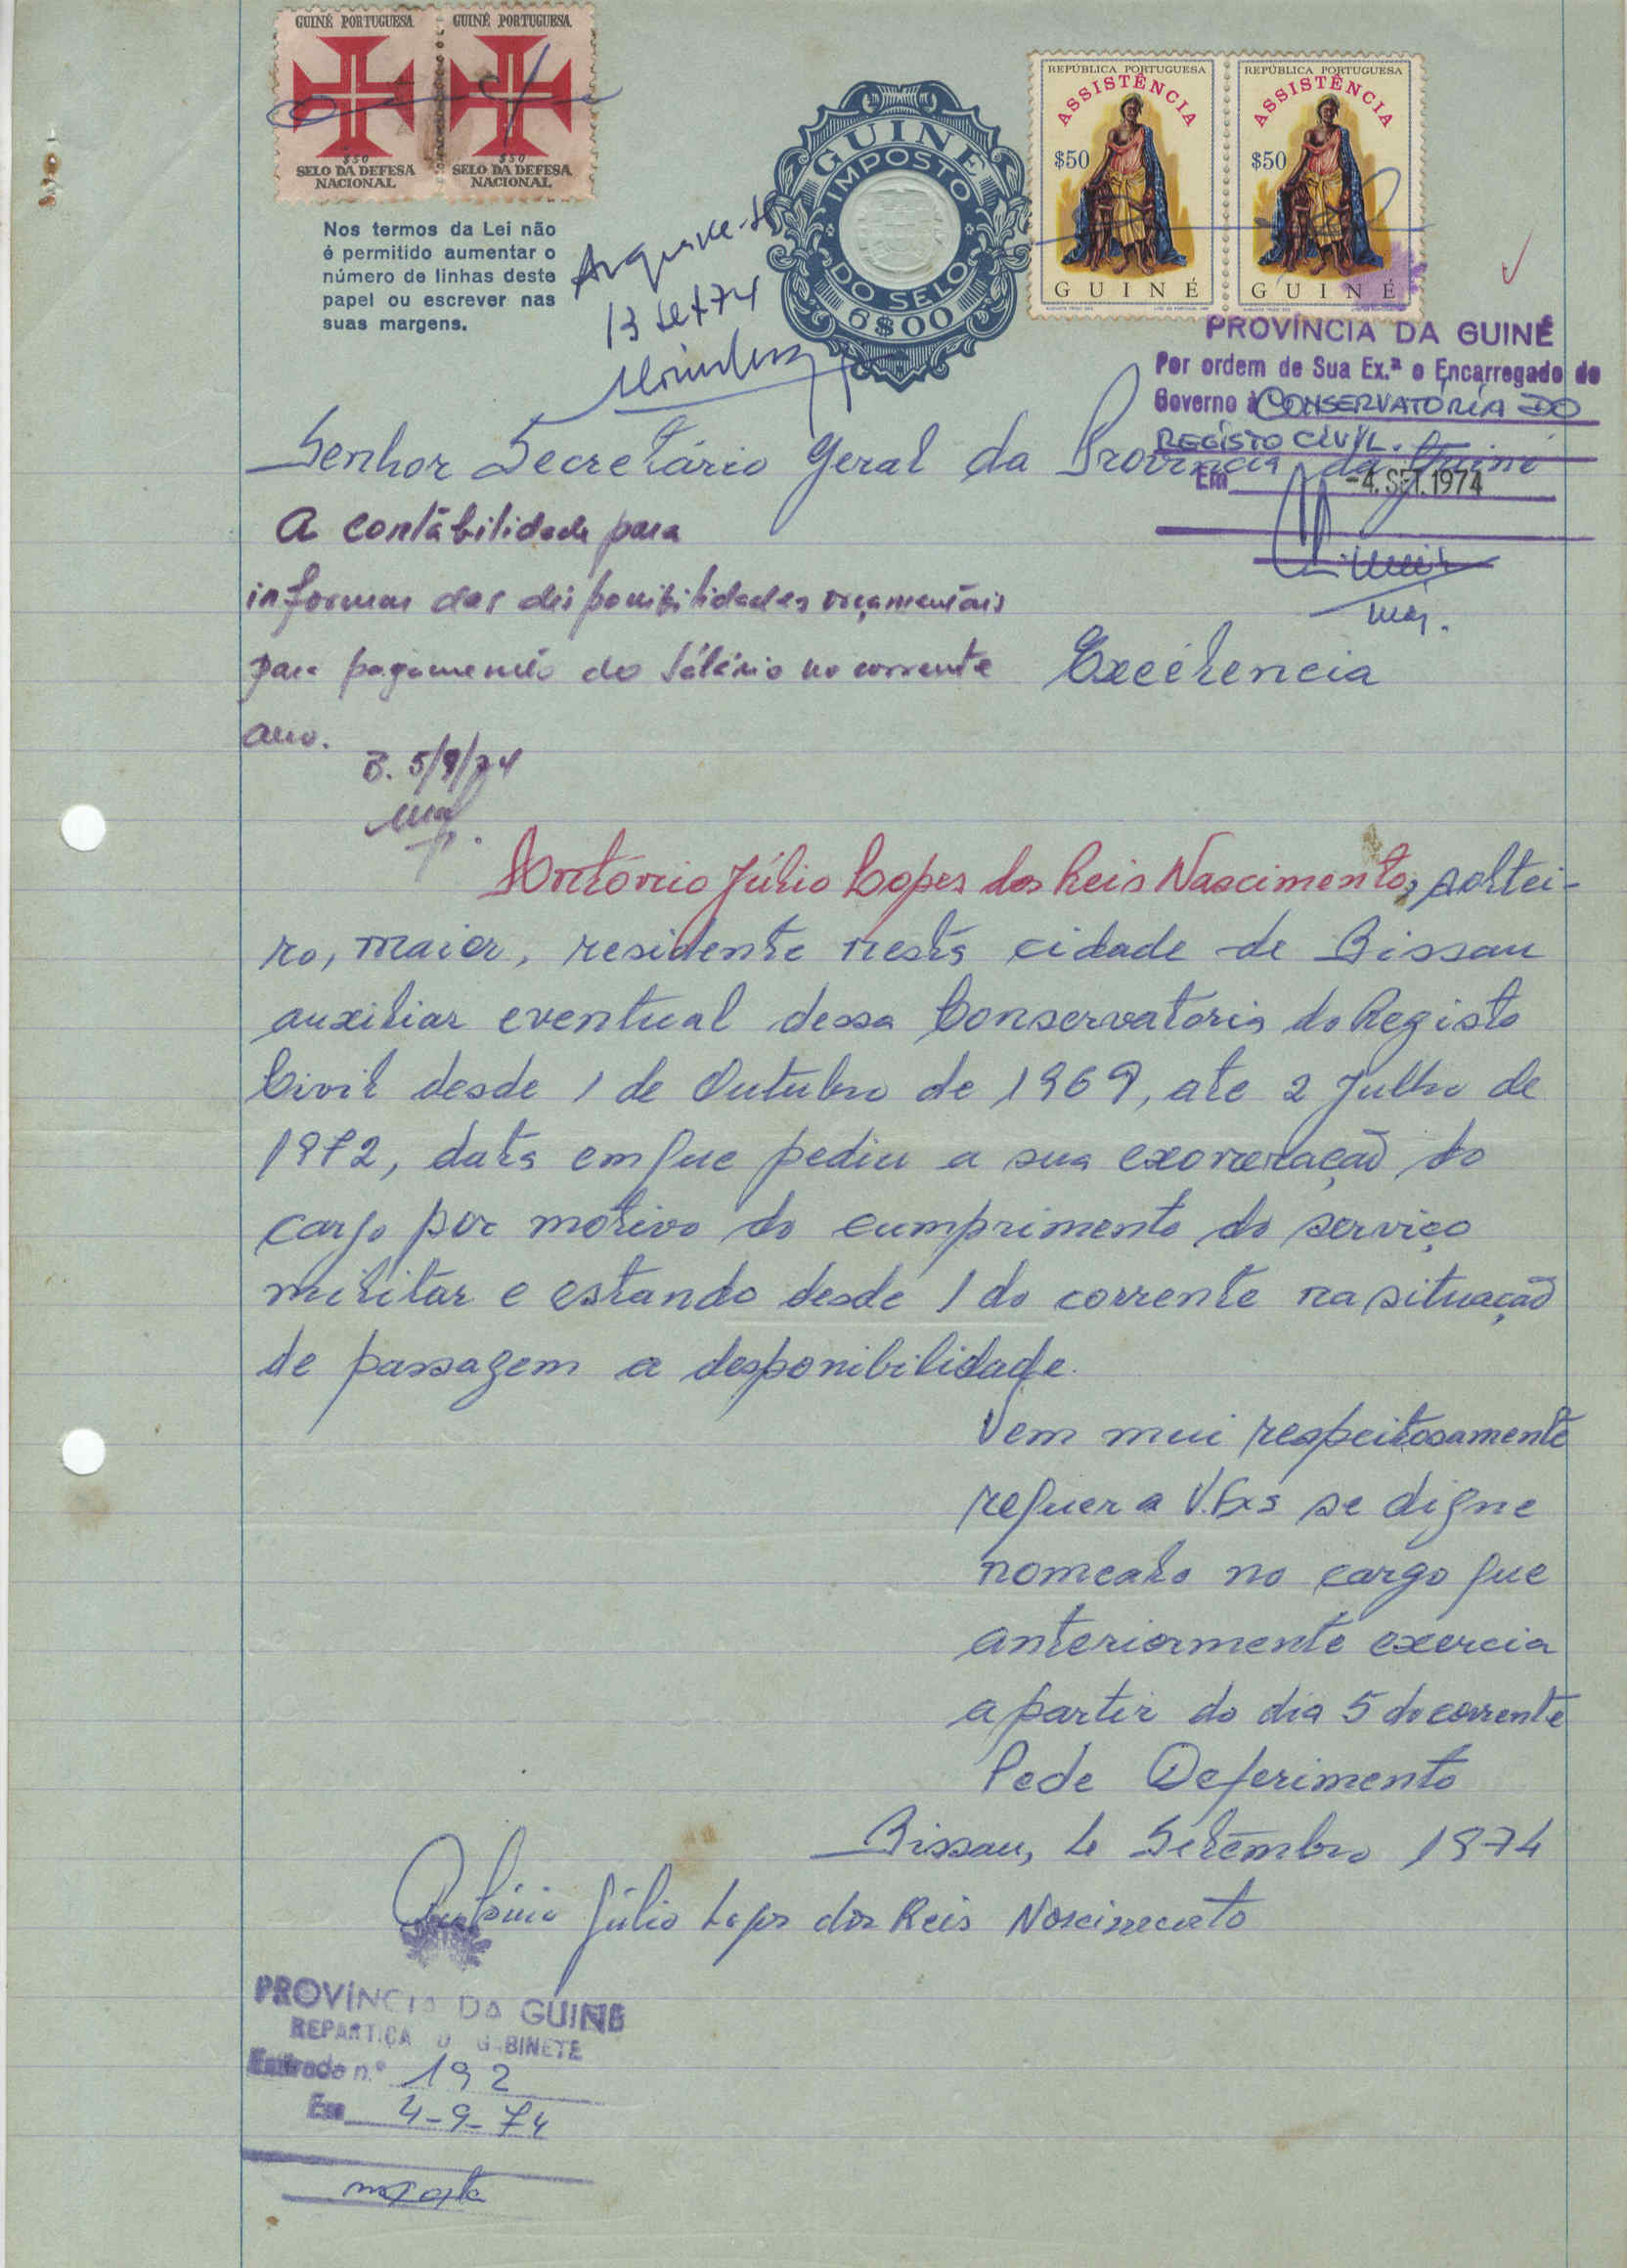 GUINÉ PORTUGUESA GUINÉ PORTUGUESA
$50 $50
SELO DA DEFESA NACIONAL SELO DA DEFESA NACIONAL
GUINÉ
IMPOSTO
DO SELO
6$00
REPÚBLICA PORTUGUESA REPÚBLICA PORTUGUESA
ASSISTÊNCIA ASSISTÊNCIA
$50 $50
GUINÉ GUINÉ
Nos termos da Lei não
é permitido aumentar o
número de linhas deste
papel ou escrever nas
suas margens.
Arquive-se
13 Set 74
PROVÍNCIA DA GUINÉ
Por ordem de Sua Ex.ª o Encarregado do
Governo à CONSERVATÓRIA DO
REGISTO CIVIL.
Em -4. SET. 1974
Senhor Secretário Geral da Província da Guiné
A contabilidade para
informar das disponibilidades orçamentais
para pagamento do salário no corrente
ano.
B. 5/9/74
Excelencia
António Júlio Lopes dos Reis Nascimento, soltei-
ro, maior, residente nesta cidade de Bissau
auxiliar eventual dessa Conservatoria do Registo
Civil desde 1 de Outubro de 1969, ate 2 Julho de
1972, data em que pediu a sua exoneração do
cargo por motivo do cumprimento do serviço
militar e estando desde 1 do corrente na situação
de passagem a desponibilidade.
Vem mui respeitosamente
requer a V. Exa se digne
nomealo no cargo que
anteriormente exercia
a partir do dia 5 do corrente
Pede Deferimento
Bissau, 4 Setembro 1974
António Júlio Lopes dos Reis Nascimento
PROVÍNCIA DA GUINÉ
REPARTIÇÃO DO GABINETE
Entrada n.º 192
Em 4-9-74